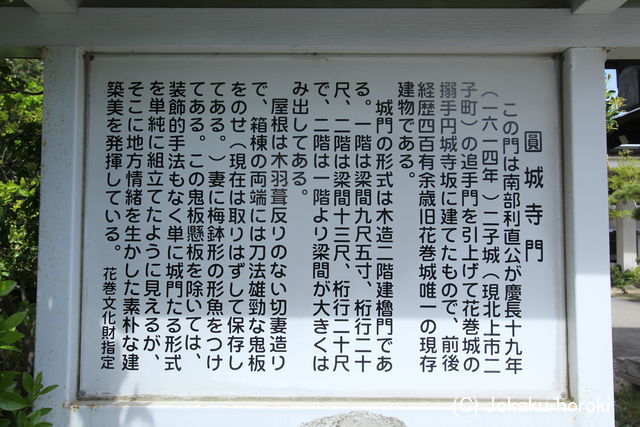 圓城寺門
この門は南部利直公が慶長十九年
（一六一四年）二子城（現北上市二
子町）の追手門を引上げて花巻城の
搦手円城寺坂に建てたもので、前後
経歴四百有余歳旧花巻城唯一の現存
建物である。
城門の形式は木造二階建櫓門であ
る。一階は梁間九尺五寸、桁行二十
尺、二階は梁間十三尺、桁行二十尺
で、二階は一階より梁間が大きくは
み出してある。
屋根は木羽葺反りのない切妻造り
で、箱棟の両端には刀法雄勁な鬼板
をのせ（現在は取りはずして保存し
てある。）妻に梅鉢形の形魚をつけ
てある。この鬼板懸板を除いては、
装飾的手法もなく単に城門たる形式
を単純に組立てたように見えるが、
そこに地方情緒を生かした素朴な建
築美を発揮している。
花巻文化財指定
(C) Jokaku-horoki